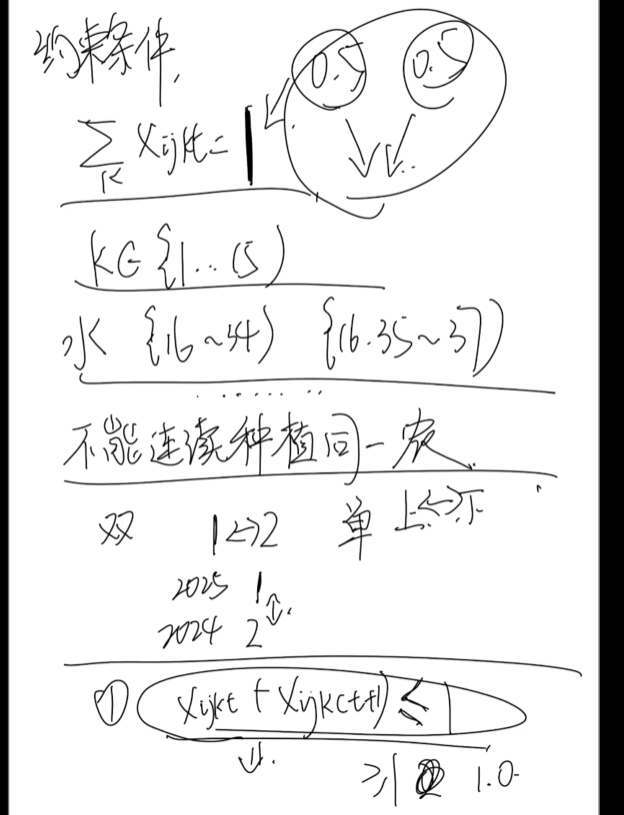 约束条件,
0.5 0.5
∑ Xijkt = 1
K
K∈{1...15)
水 {16~34) {16.35~37)
........
不能连续种植同一农
双 1↔2 单 上↔下
2025 1
2024 2
① Xijkt + Xijk(t+1) ≤ 1
≥1 1.0